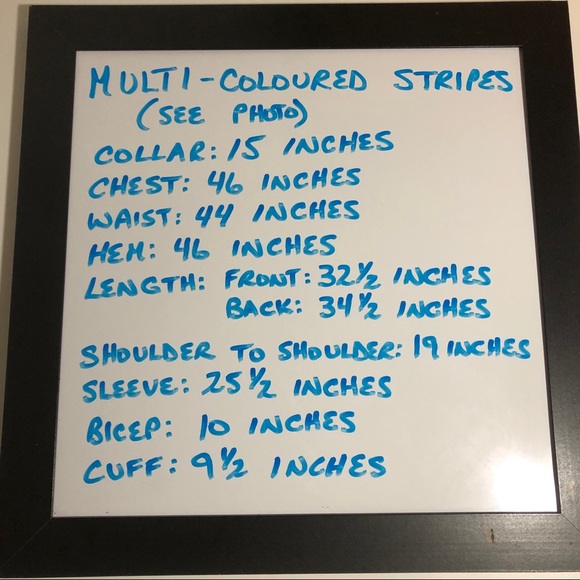 MULTI-COLOURED STRIPES
(SEE PHOTO)
COLLAR: 15 INCHES
CHEST: 46 INCHES
WAIST: 44 INCHES
HEM: 46 INCHES
LENGTH: FRONT: 32 1/2 INCHES
BACK: 34 1/2 INCHES
SHOULDER TO SHOULDER: 19 INCHES
SLEEVE: 25 1/2 INCHES
BICEP: 10 INCHES
CUFF: 9 1/2 INCHES